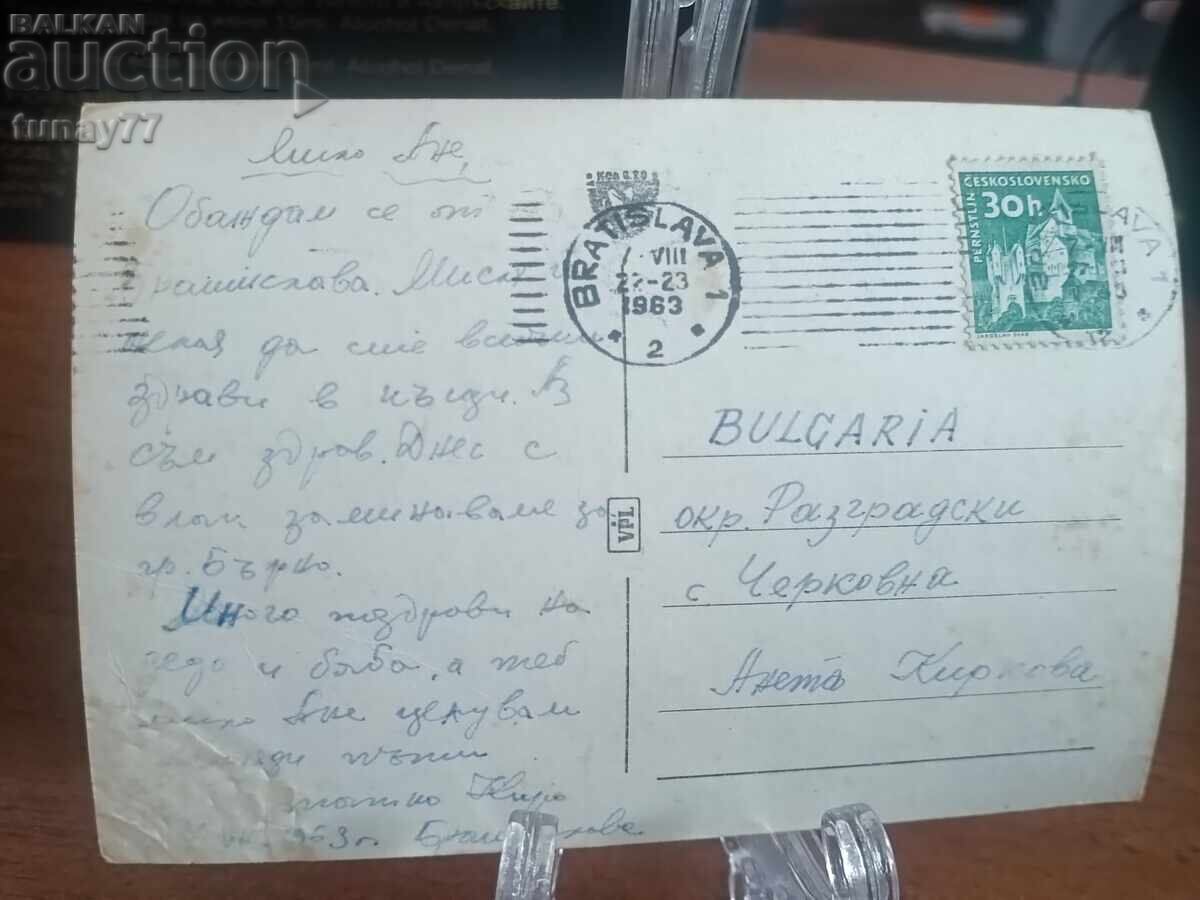 BALKAN
auction
tunay77
мило Ане,
Обаждам се от
да сте всички
здрави в къщи. Аз
съм здрав. Днес с
влак заминаваме за
гр. Бърно.
Много поздрави на
дедо и баба, а теб
мило Ане целувам
пъти
татко Киро
1963 г.
BRATISLAVA 1
VIII
22-23
1963
2
ČESKOSLOVENSKO
30h
PERNŠTEJN
VPL
BULGARIA
окр. Разградски
с. Черковна
Анета Киркова